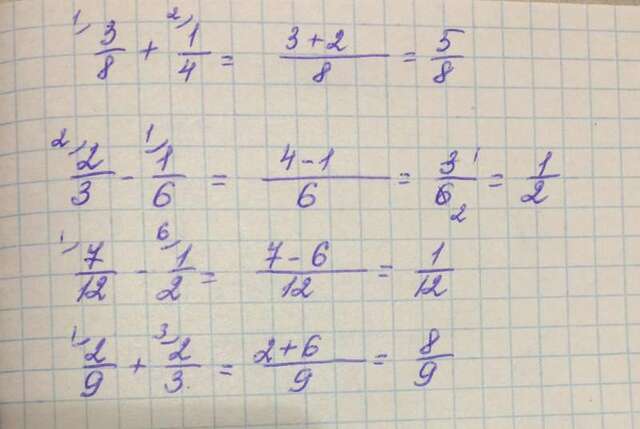 1) 3/8 + 2) 1/4 = (3+2)/8 = 5/8
2) 2/3 - 1) 1/6 = (4-1)/6 = 3 1/6 2 = 1/2
1) 7/12 - 6) 1/2 = (7-6)/12 = 1/12
1) 2/9 + 3) 2/3 = (2+6)/9 = 8/9